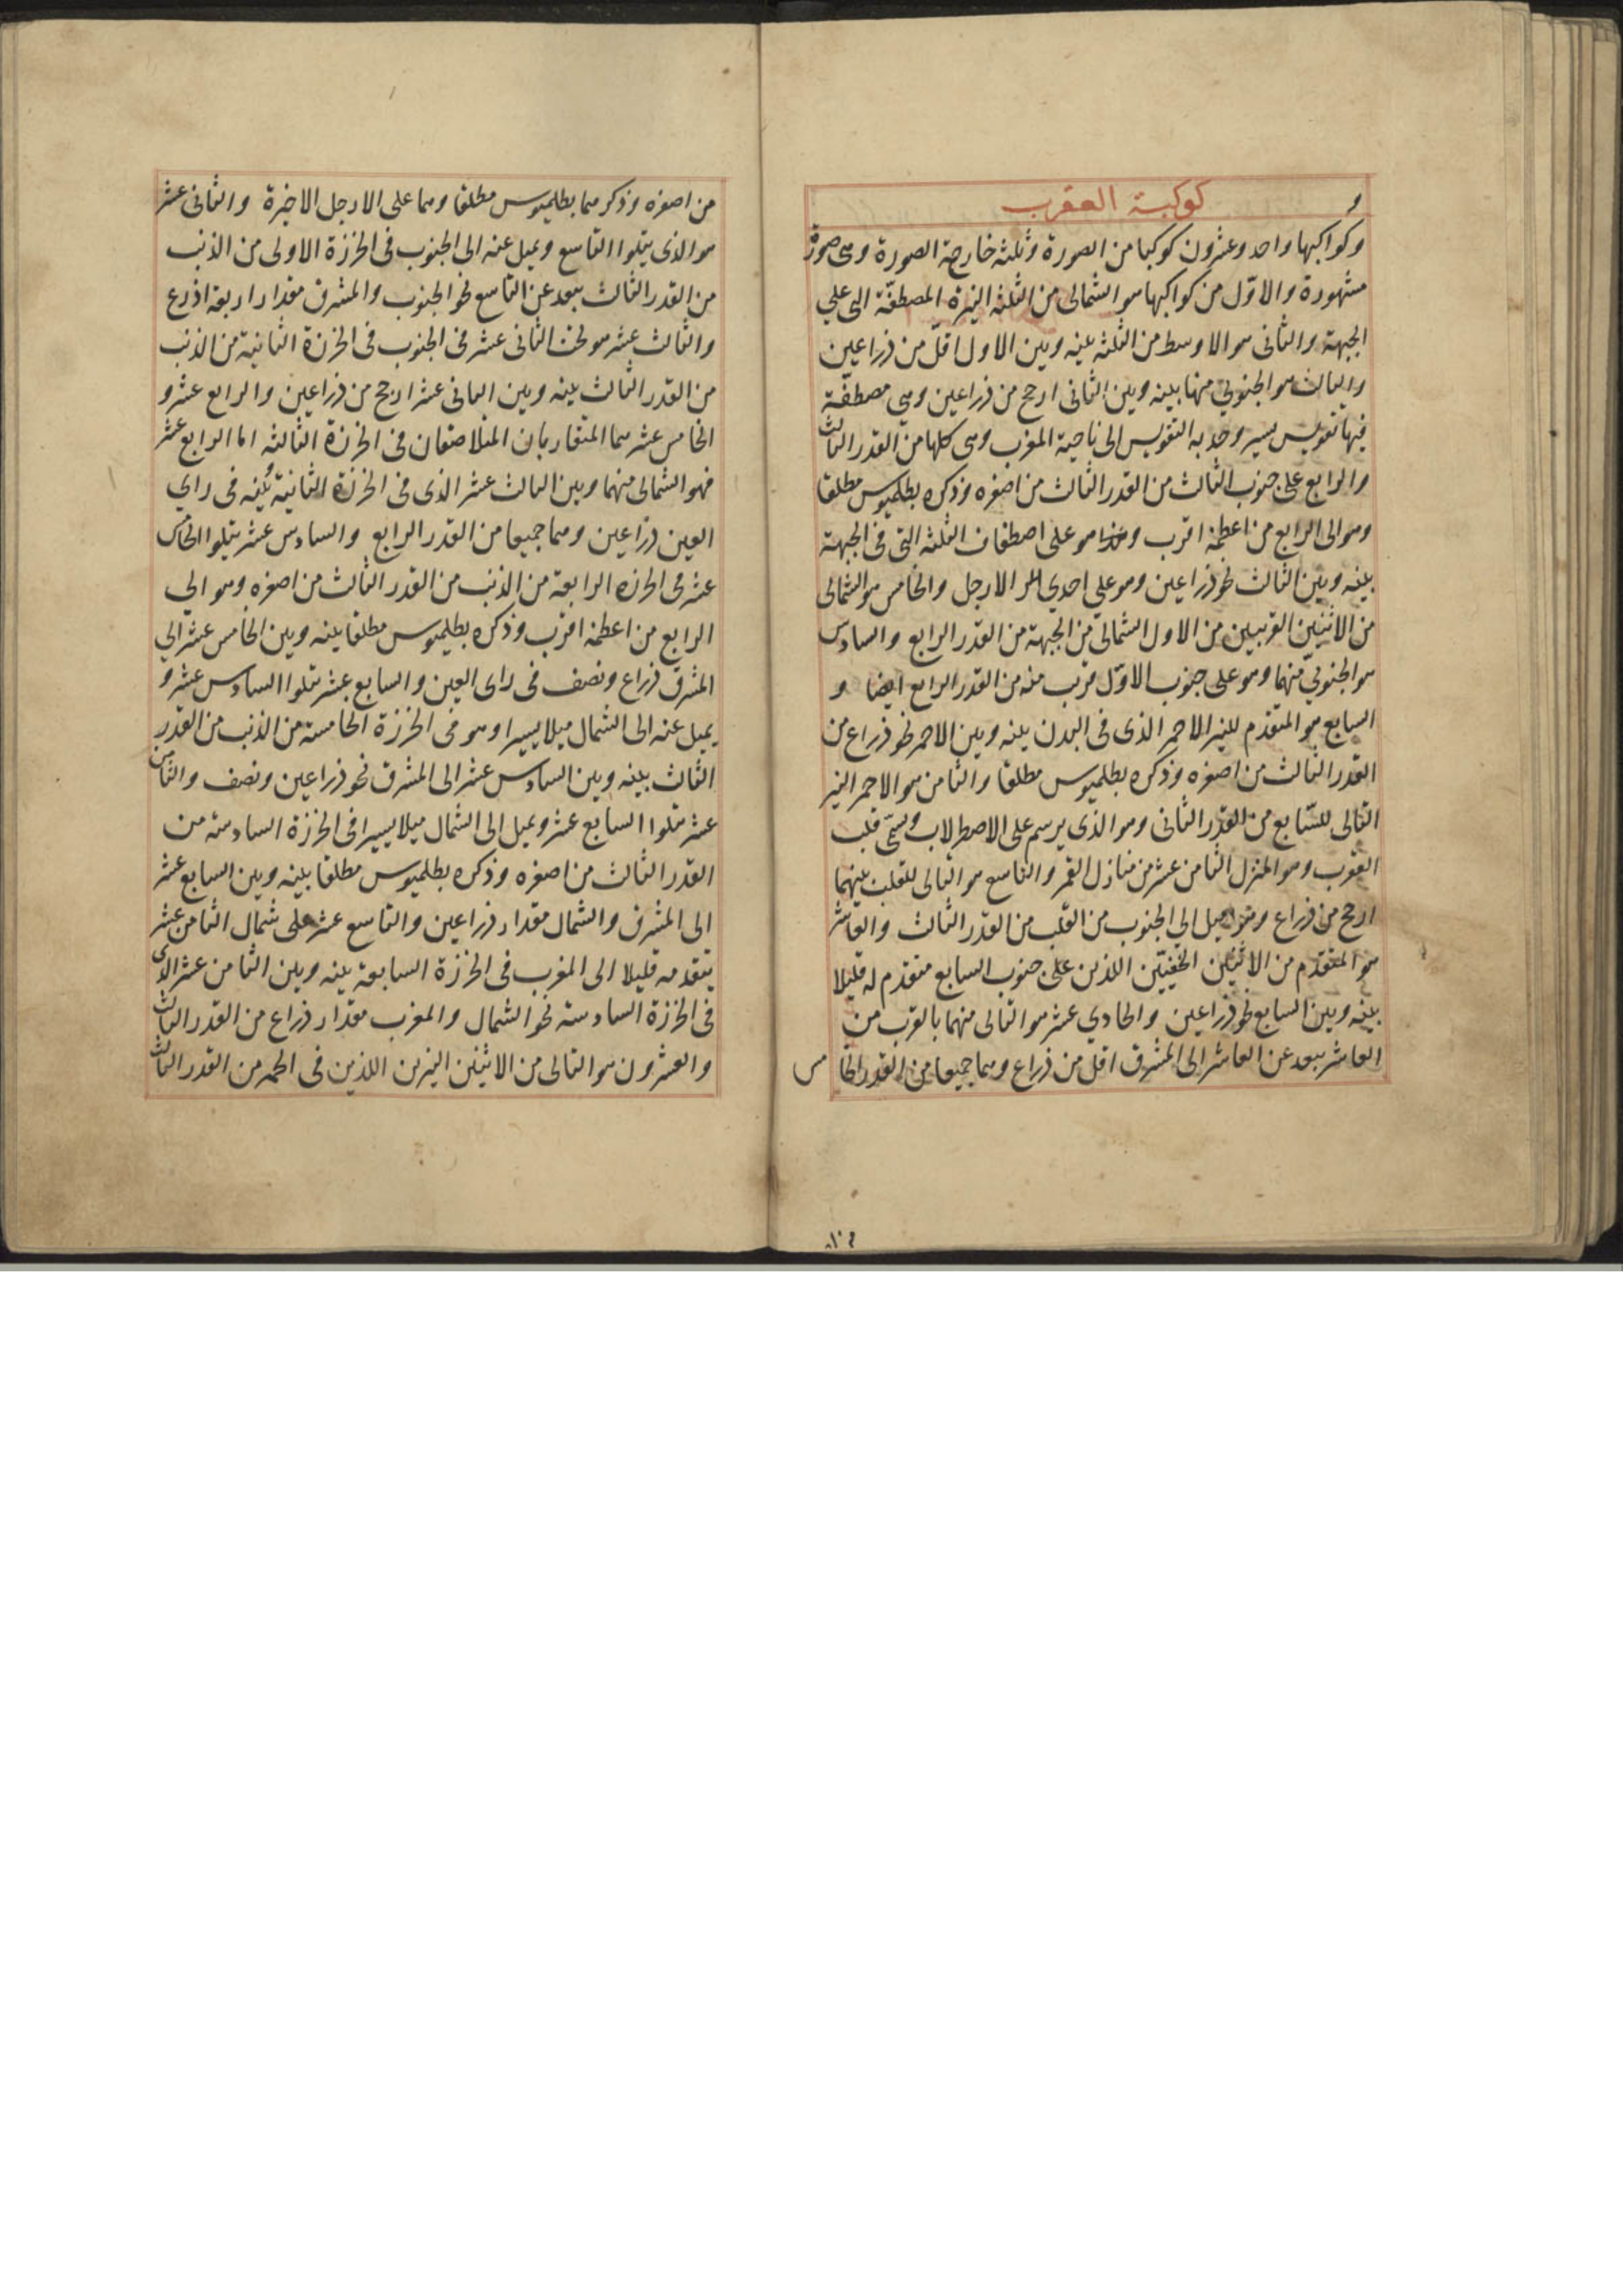 كوكبة العقرب
و
وكواكبها واحد وعشرون كوكبا من الصورة وثلثه خارجة الصورة وهى صورة
مشهورة والاوّل من كواكبها هو الشمالى من الثلثه النيرة المصطفّة التى على
الجبهة والثانى هو الاوسط من الثلثه بينه وبين الاول اقلّ من ذراعين
والثالث هو الجنوبي منها بينه وبين الثانى ارجح من ذراعين وهى مصطفّة
فيها تقويس يسير وحدبه التقويس الى ناحية المغرب وهى كلها من القدر الثالث
والرابع على جنوب الثالث من القدر الثالث من اصغره وذكره بطلميوس مطلقا
وهو الى الرابع من اعظمه اقرب وهذا هو على اصطفاف الثلثه التى فى الجبهة
بينه وبين الثالث نحو ذراعين وهو على احدي الارجل والخامس هو الشمالى
من الاثنين القريبين من الاول الشمالى من الجبهة من القدر الرابع والسادس
هو الجنوبيّ منهما وهو على جنوب الاوّل قريب منه من القدر الرابع ايضا و
السابع هو المتقدم للنير الاحمر الذى فى البدن بينه وبين الاحمر نحو ذراع من
القدر الثالث من اصغره وذكره بطلميوس مطلقا والثامن هو الاحمر النير
التالى للسّابع من القدر الثانى وهو الذى يرسم على الاصطرلاب ويسمّى قلب
العقرب وهو المنزل الثامن عشر من منازل القمر والتاسع هو التالى للقلب بينهما
ارجح من ذراع وهو اميل الي الجنوب من القلب من القدر الثالث والعاشر
هو المتقدم من الاثنين الخفيّين اللذين على جنوب السابع متقدم له قليلا
بينه وبين السابع نحو ذراعين والحادي عشر هو التالى منهما بالقرب من
العاشر يبعد عن العاشر الى المشرق اقل من ذراع وهما جميعا من القدر الخامس
من اصغره وذكرهما بطلميوس مطلقا وهما على الارجل الاخيرة والثانى عشر
هو الذى يتلوا التاسع ويميل عنه الى الجنوب فى الخرزة الاولى من الذنب
من القدر الثالث يبعد عن التاسع نحو الجنوب والمشرق مقدار اربعة اذرع
والثالث عشر هو تحت الثانى عشر فى الجنوب فى الخرزة الثانية من الذنب
من القدر الثالث بينه وبين الثانى عشر ارجح من ذراعين والرابع عشر و
الخامس عشر هما المتقاربان المتلاصقان فى الخرزة الثالثه اما الرابع عشر
فهو الشمالى منهما وبين الثالث عشر الذى فى الخرزة الثانية بينه فى راي
العين ذراعين وهما جميعا من القدر الرابع والسادس عشر يتلوا الخامس
عشر فى الخرزه الرابعة من الذنب من القدر الثالث من اصغره وهو الي
الرابع من اعظمه اقرب وذكره بطلميوس مطلقا بينه وبين الخامس عشر الي
المشرق ذراع ونصف فى راى العين والسابع عشر يتلوا السادس عشر و
يميل عنه الى الشمال ميلا يسيرا وهو فى الخرزة الخامسة من الذنب من القدر
الثالث بينه وبين السادس عشر الى المشرق نحو ذراعين ونصف والثامن
عشر يتلوا السابع عشر ويميل الى الشمال ميلا يسيرا فى الخرزة السادسة من
القدر الثالث من اصغره وذكره بطلميوس مطلقا بينه وبين السابع عشر
الى المشرق والشمال مقدار ذراعين والتاسع عشر على شمال الثامن عشر
يتقدمه قليلا الى المغرب فى الخرزة السابعة بينه وبين الثامن عشر الذى
فى الخرزة السادسة نحو الشمال والمغرب مقدار ذراع من القدر الثالث
والعشرون هو التالى من الاثنين النيرين اللذين فى الحمه من القدر الثالث